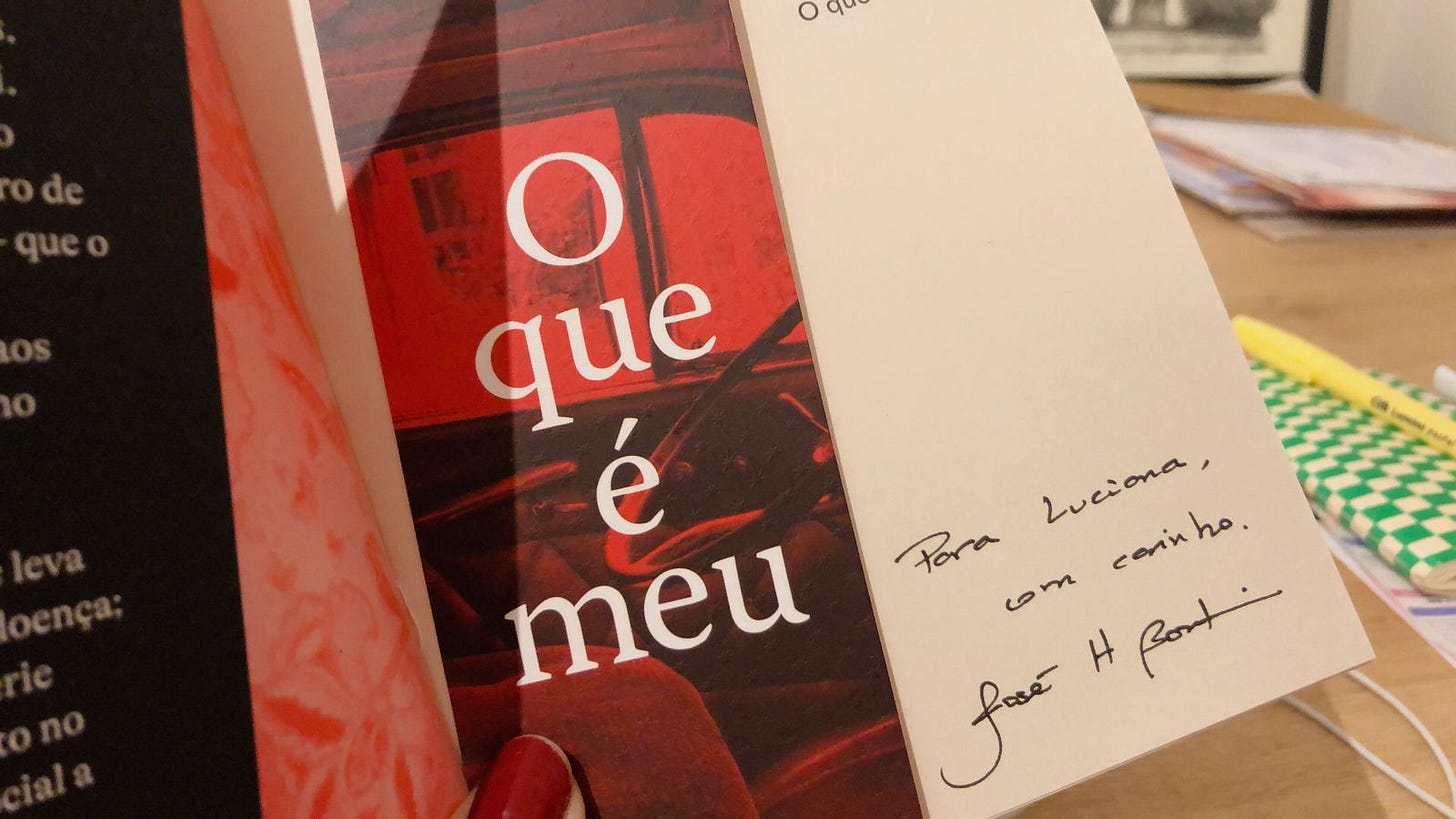 ro de
- que o
nos
no
leva
doença;
to no
cial a
O
que
é
meu
O que
Para Luciana,
com carinho.
José H Bortoluci